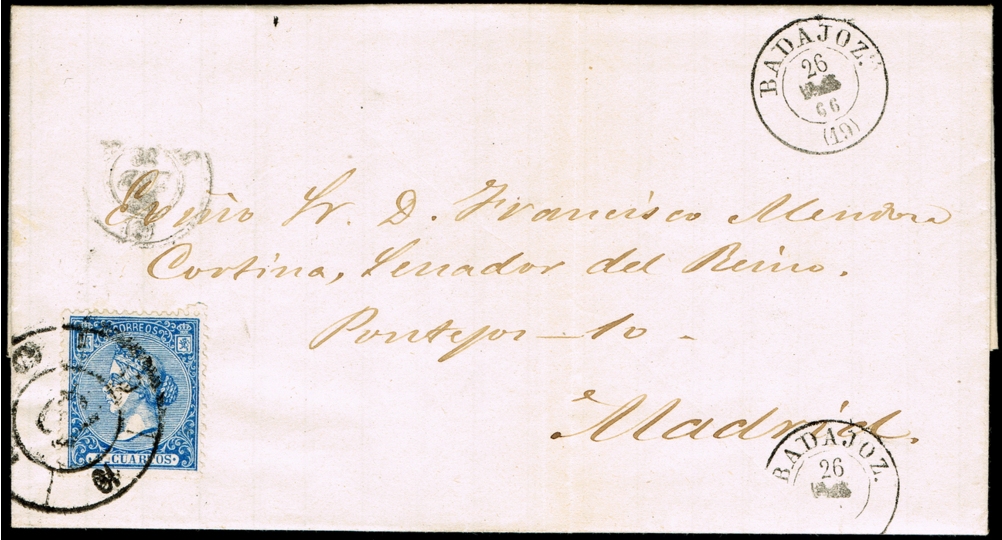 BADAJOZ.
26
66
(19)
Exmo Sr. D. Francisco Mendoza
Cortina, Senador del Reino.
Pontejos - 10 -
Madrid.
CORREOS
4 CUARTOS
BADAJOZ.
26